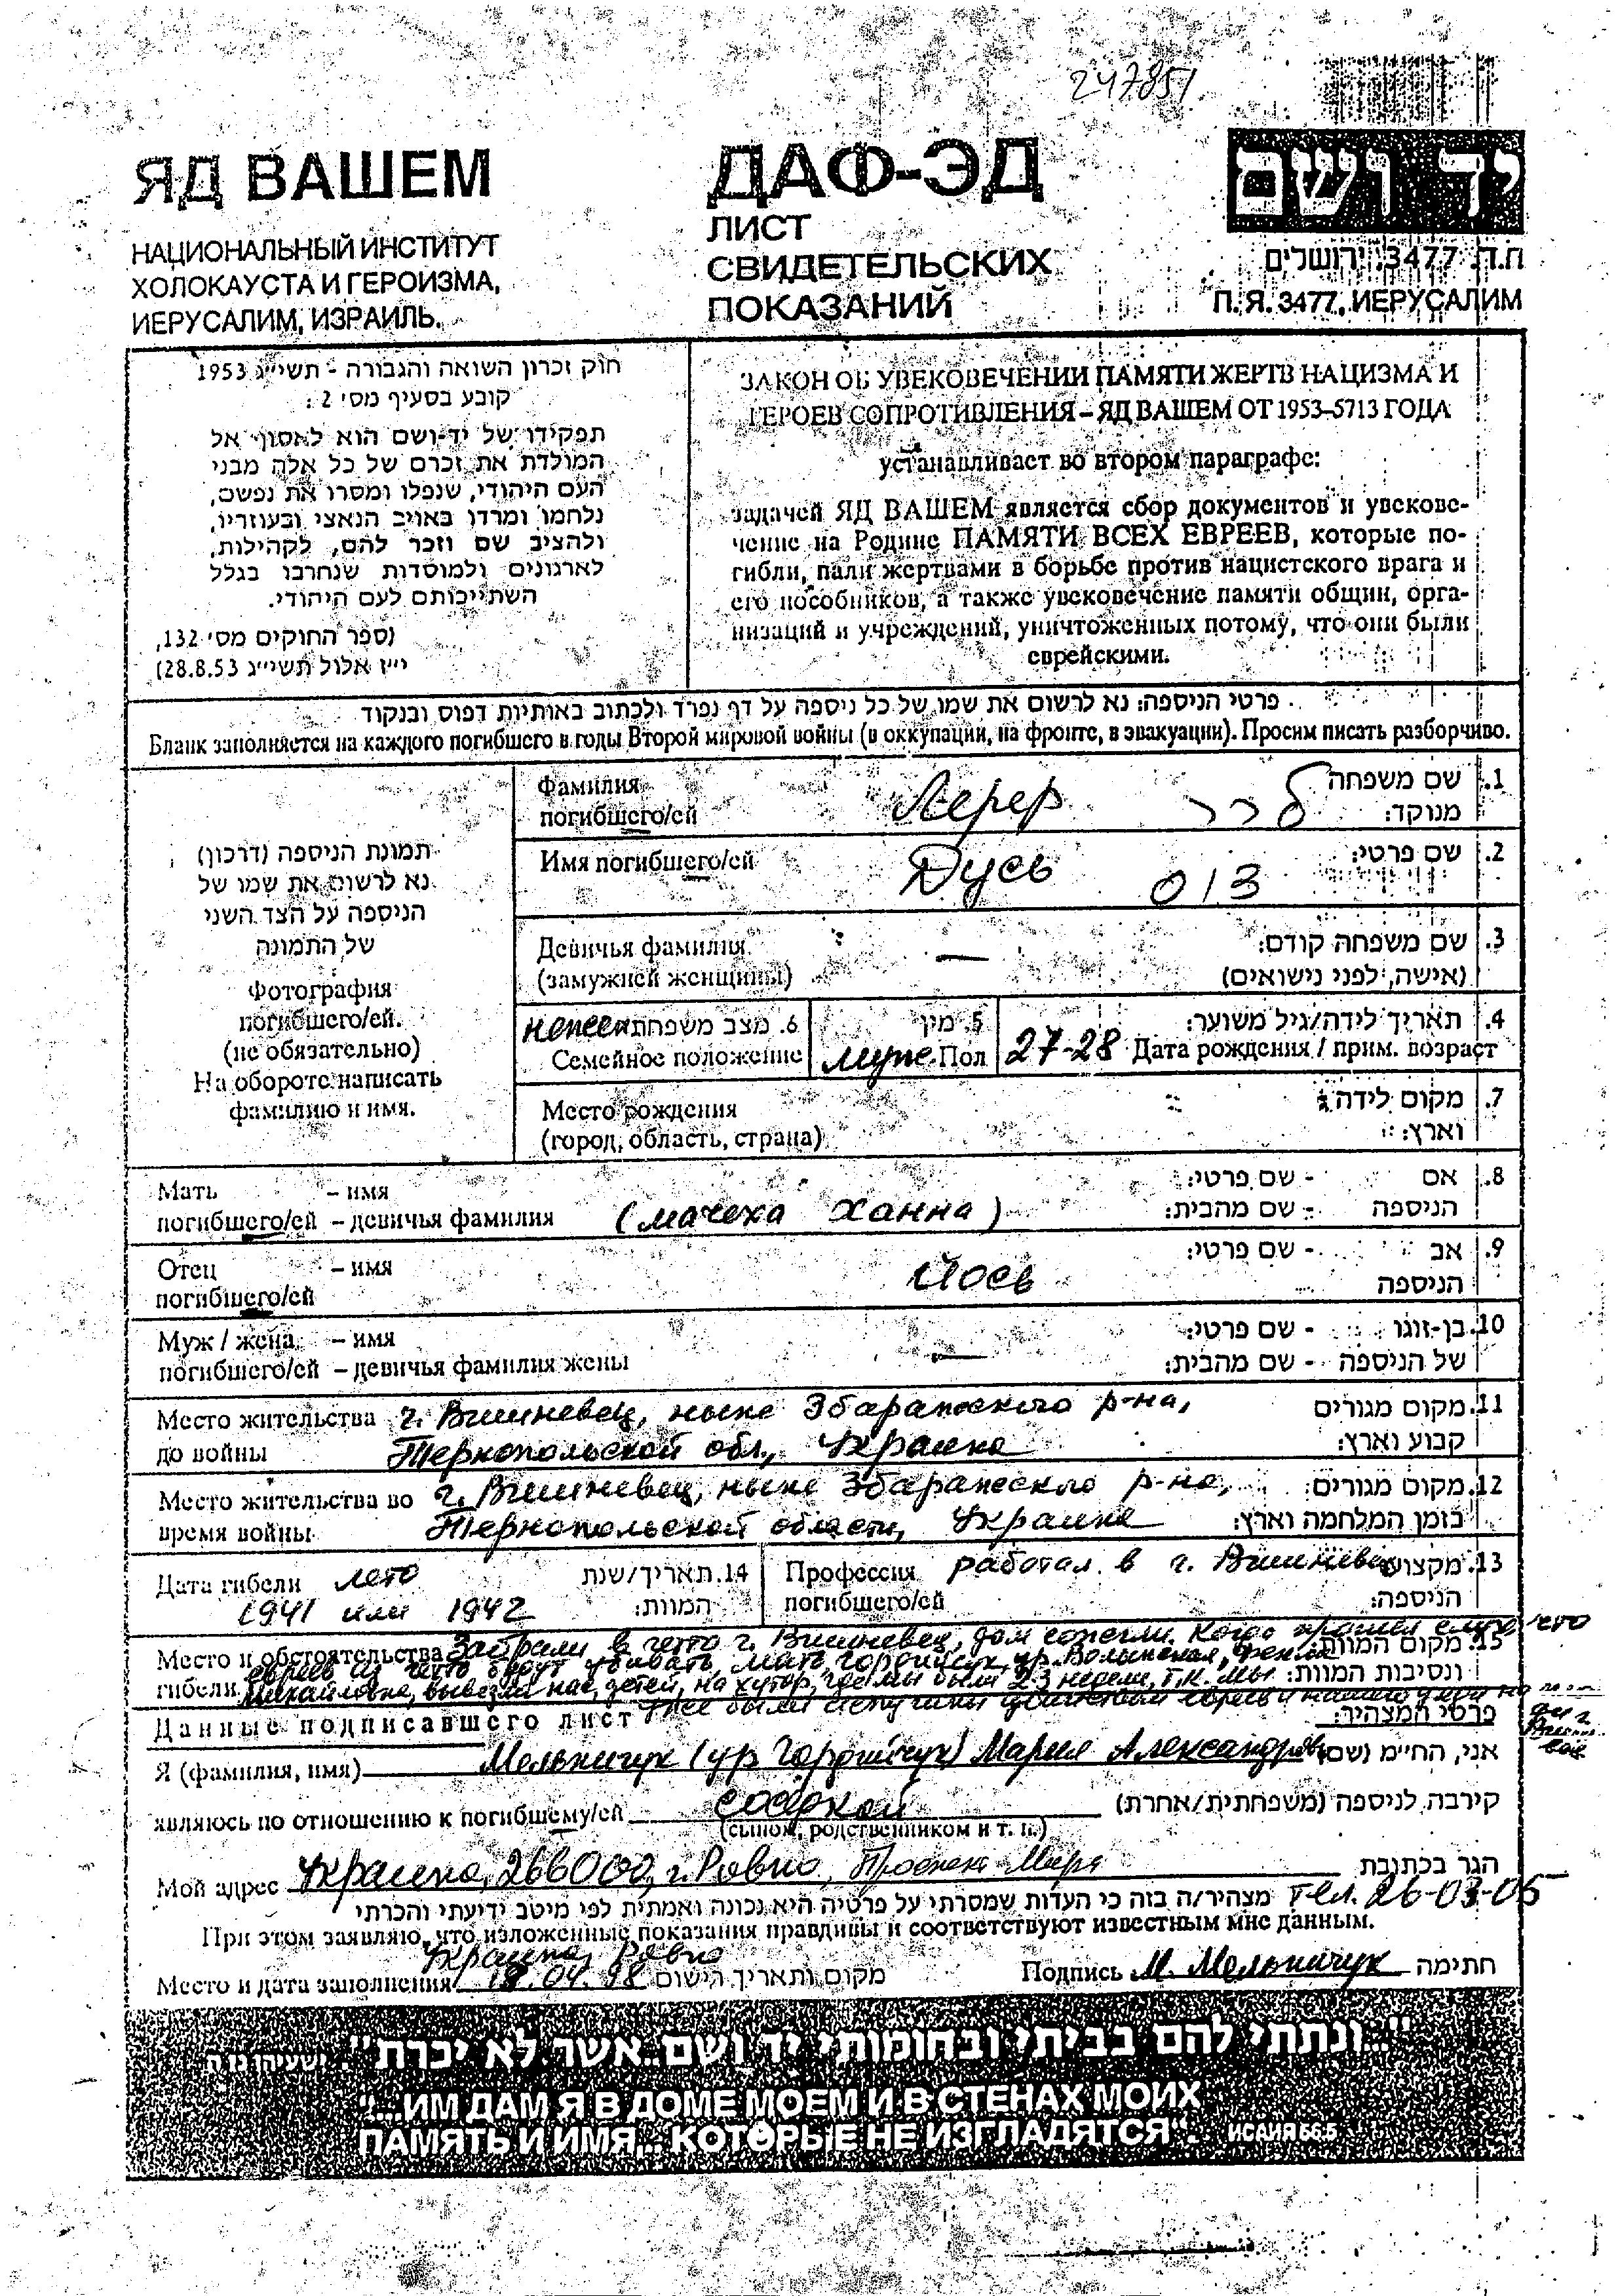 247851
ЯД ВАШЕМ
НАЦИОНАЛЬНЫЙ ИНСТИТУТ
ХОЛОКАУСТА И ГЕРОИЗМА,
ИЕРУСАЛИМ, ИЗРАИЛЬ.
ДАФ-ЭД
ЛИСТ
СВИДЕТЕЛЬСКИХ
ПОКАЗАНИЙ
יד ושם
ת.ד. 3477, ירושלים
П.Я. 3477, ИЕРУСАЛИМ
חוק זכרון השואה והגבורה - תשי״ג 1953
קובע בסעיף מס׳ 2:
תפקידו של יד-ושם הוא לאסוף אל
המולדת את זכרם של כל אלה מבני
העם היהודי, שנפלו ומסרו את נפשם,
נלחמו ומרדו באויב הנאצי ובעוזריו,
ולהציב שם וזכר להם, לקהילות,
לארגונים ולמוסדות שנחרבו בגלל
השתייכותם לעם היהודי.
(ספר החוקים מס׳ 132,
י״ז אלול תשי״ג 28.8.53)
ЗАКОН ОБ УВЕКОВЕЧЕНИИ ПАМЯТИ ЖЕРТВ НАЦИЗМА И
ГЕРОЕВ СОПРОТИВЛЕНИЯ – ЯД ВАШЕМ ОТ 1953–5713 ГОДА
устанавливает во втором параграфе:
задачей ЯД ВАШЕМ является сбор документов и увекове-
чение на Родине ПАМЯТИ ВСЕХ ЕВРЕЕВ, которые по-
гибли, пали жертвами в борьбе против нацистского врага и
его пособников, а также увековечение памяти общин, орга-
низаций и учреждений, уничтоженных потому, что они были
еврейскими.
פרטי הניספה: נא לרשום את שמו של כל ניספה על דף נפרד ולכתוב באותיות דפוס ובנקוד
Бланк заполняется на каждого погибшего в годы Второй мировой войны (в оккупации, на фронте, в эвакуации). Просим писать разборчиво.
תמונת הניספה (דרכון)
נא לרשום את שמו של
הניספה על הצד השני
של התמונה
Фотография
погибшего/ей.
(не обязательно)
На обороте написать
фамилию и имя.
Фамилия Лерер לרר 1. שם משפחה
погибшего/ей מנוקד:
Имя погибшего/ей Дусь 2. שם פרטי:
Девичья фамилия — 3. שם משפחה קודם:
(замужней женщины) (אישה, לפני נישואים)
нежен 6. מצב משפחתי 5. מין 4. תאריך לידה/גיל משוער:
Семейное положение муж Пол 27-28 Дата рождения / прим. возраст
Место рождения 7. מקום לידה
(город, область, страна) וארץ:
Мать – имя 8. אם - שם פרטי:
погибшего/ей – девичья фамилия (мачеха Ханна) הניספה - שם מהבית:
Отец – имя Йось 9. אב - שם פרטי:
погибшего/ей הניספה
Муж / жена – имя 10. בן-זוגו - שם פרטי:
погибшего/ей – девичья фамилия жены — של הניספה - שם מהבית:
Место жительства г. Вишневец, ныне Збаражского р-на, 11. מקום מגורים
до войны Тернопольской обл., Украина קבוע וארץ:
Место жительства во г. Вишневец, ныне Збаражского р-на, 12. מקום מגורים:
время войны Тернопольской области, Украина בזמן המלחמה וארץ:
Дата гибели лето 14. תאריך/שנת Профессия работал в г. Вишневец 13. מקצוע
1941 или 1942 המוות: погибшего/ей הניספה:
Место и обстоятельства Забрали в гетто г. Вишневец, дом сожгли. Когда прошел слух, что 15. מקום המוות:
гибели евреев из гетто будут убивать, мать, Горощук, ур. Волынская, Фекла
Михайловна, вывезла нас, детей, на хутор, где мы были 2-3 недели, т.к. мы ונסיבות המוות:
все были испуганы убийством евреев
Данные подписавшего лист פרטי המצהיר:
Я (фамилия, имя) Мельничук (ур Горощук) Мария Александровна אני, החי״מ (שם)
являюсь по отношению к погибшему/ей соседкой קירבה לניספה (משפחתית/אחרת)
(сыном, родственником и т. п.)
Мой адрес Украина, 266000, г. Ровно, Проспект Мира הגר בכתובת
тел. 26-03-05 מצהיר/ה בזה כי העדות שמסרתי על פרטיה היא נכונה ואמתית לפי מיטב ידיעתי והכרתי
При этом заявляю, что изложенные показания правдивы и соответствуют известным мне данным.
Украина, Ровно
Место и дата заполнения 18.04.98 מקום ותאריך הישום Подпись М. Мельничук חתימה
"...ונתתי להם בביתי ובחומותי יד ושם...אשר לא יכרת" ישעיהו נו, ה
"...ИМ ДАМ Я В ДОМЕ МОЕМ И В СТЕНАХ МОИХ
ПАМЯТЬ И ИМЯ... КОТОРЫЕ НЕ ИЗГЛАДЯТСЯ" ИСАИЯ 56.5